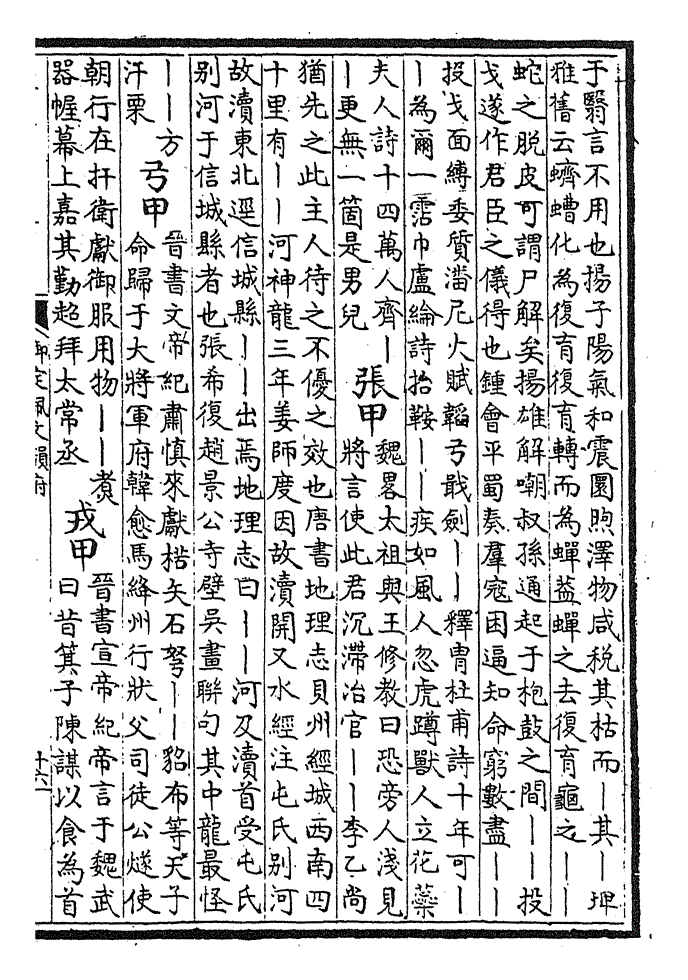 于翳言不用也揚子陽氣和震圜煦澤物咸税其枯而｜其｜坤
雅舊云蠐螬化為復育復育轉而為蟬葢蟬之去復育龜之｜｜
蛇之脱皮可謂尸解矣揚雄解嘲叔孫通起于枹鼓之間｜｜投
戈遂作君臣之儀得也鍾會平蜀奏羣寇困逼知命窮數盡｜｜
投戈面縛委質潘尼火賦韜弓戢劍｜｜釋胄杜甫詩十年可｜
｜為爾一霑巾盧綸詩抬鞍｜｜疾如風人忽虎蹲獸人立花藥
夫人詩十四萬人齊｜
｜更無一箇是男兒
張甲
魏畧太祖與王修教曰恐旁人淺見
將言使此君沉滯冶官｜｜李乙尚
猶先之此主人待之不優之效也唐書地理志貝州經城西南四
十里有｜｜河神龍三年姜師度因故瀆開又水經注屯氏別河
故瀆東北逕信城縣｜｜出焉地理志曰｜｜河及瀆首受屯氏
別河于信城縣者也張希復趙景公寺壁吳畫聯句其中龍最怪
｜｜方
汗栗
弓甲
晉書文帝紀肅慎來獻楛矢石弩｜｜貂布等天子
命歸于大將軍府韓愈馬絳州行狀父司徒公燧使
朝行在扞衛獻御服用物｜｜煑
器幄幕上嘉其勤超拜太常丞
戎甲
晉書宣帝紀帝言于魏武
曰昔箕子陳謀以食為首
御定佩文韻府
十六